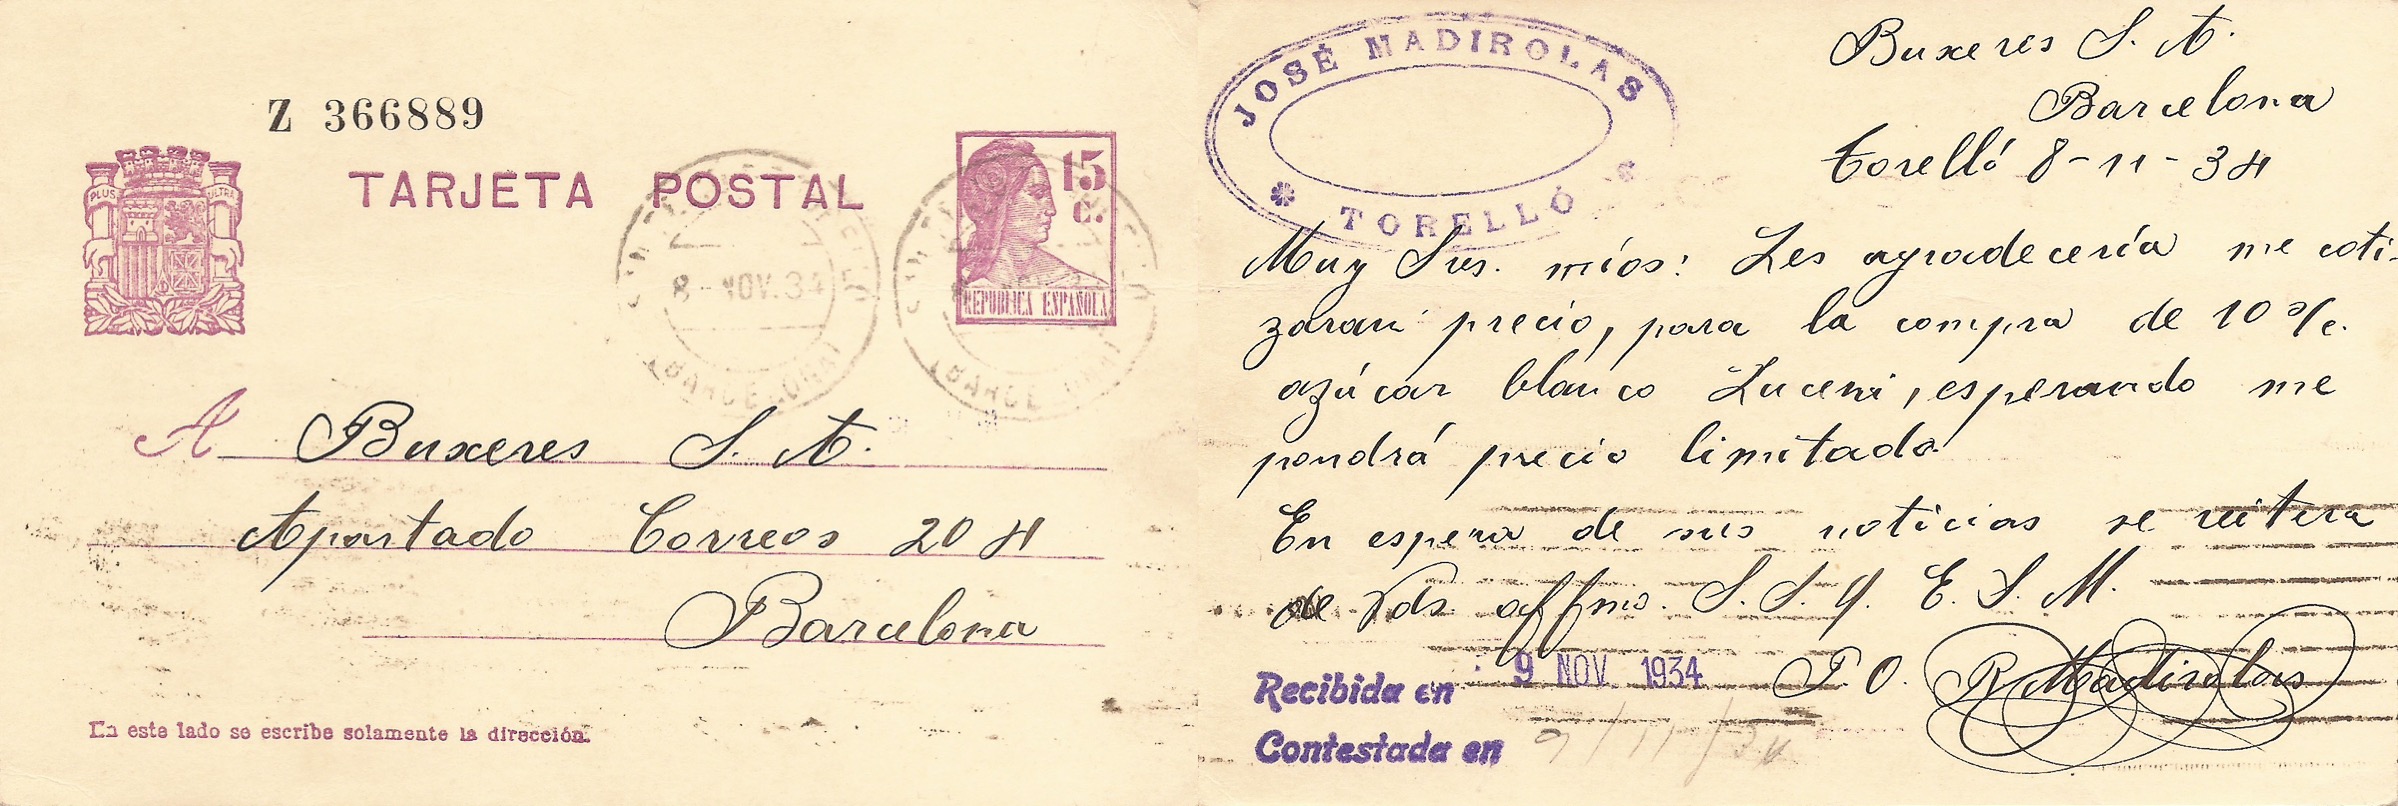 Z 366889
PLUS ULTRA
TARJETA POSTAL
15
c.
REPUBLICA ESPAÑOLA
8-NOV.34
(BARCELONA)
A Buxeres S. A.
Apartado Correos 204
Barcelona
En este lado se escribe solamente la dirección.
JOSÉ MADIROLAS
TORELLÓ
Buxeres S. A.
Barcelona
Torelló 8-11-34
Muy Sres. míos: Les agradecería me coti-
zaran precio, para la compra de 10 s/c.
azúcar blanco Luceni, esperando me
pondrá precio limitado
En espera de sus noticias se reitera
de Vds affmo. S. S. q. E. S. M.
P. O. R Madirolas
Recibida en 9 NOV 1934
Contestada en 9/11/34